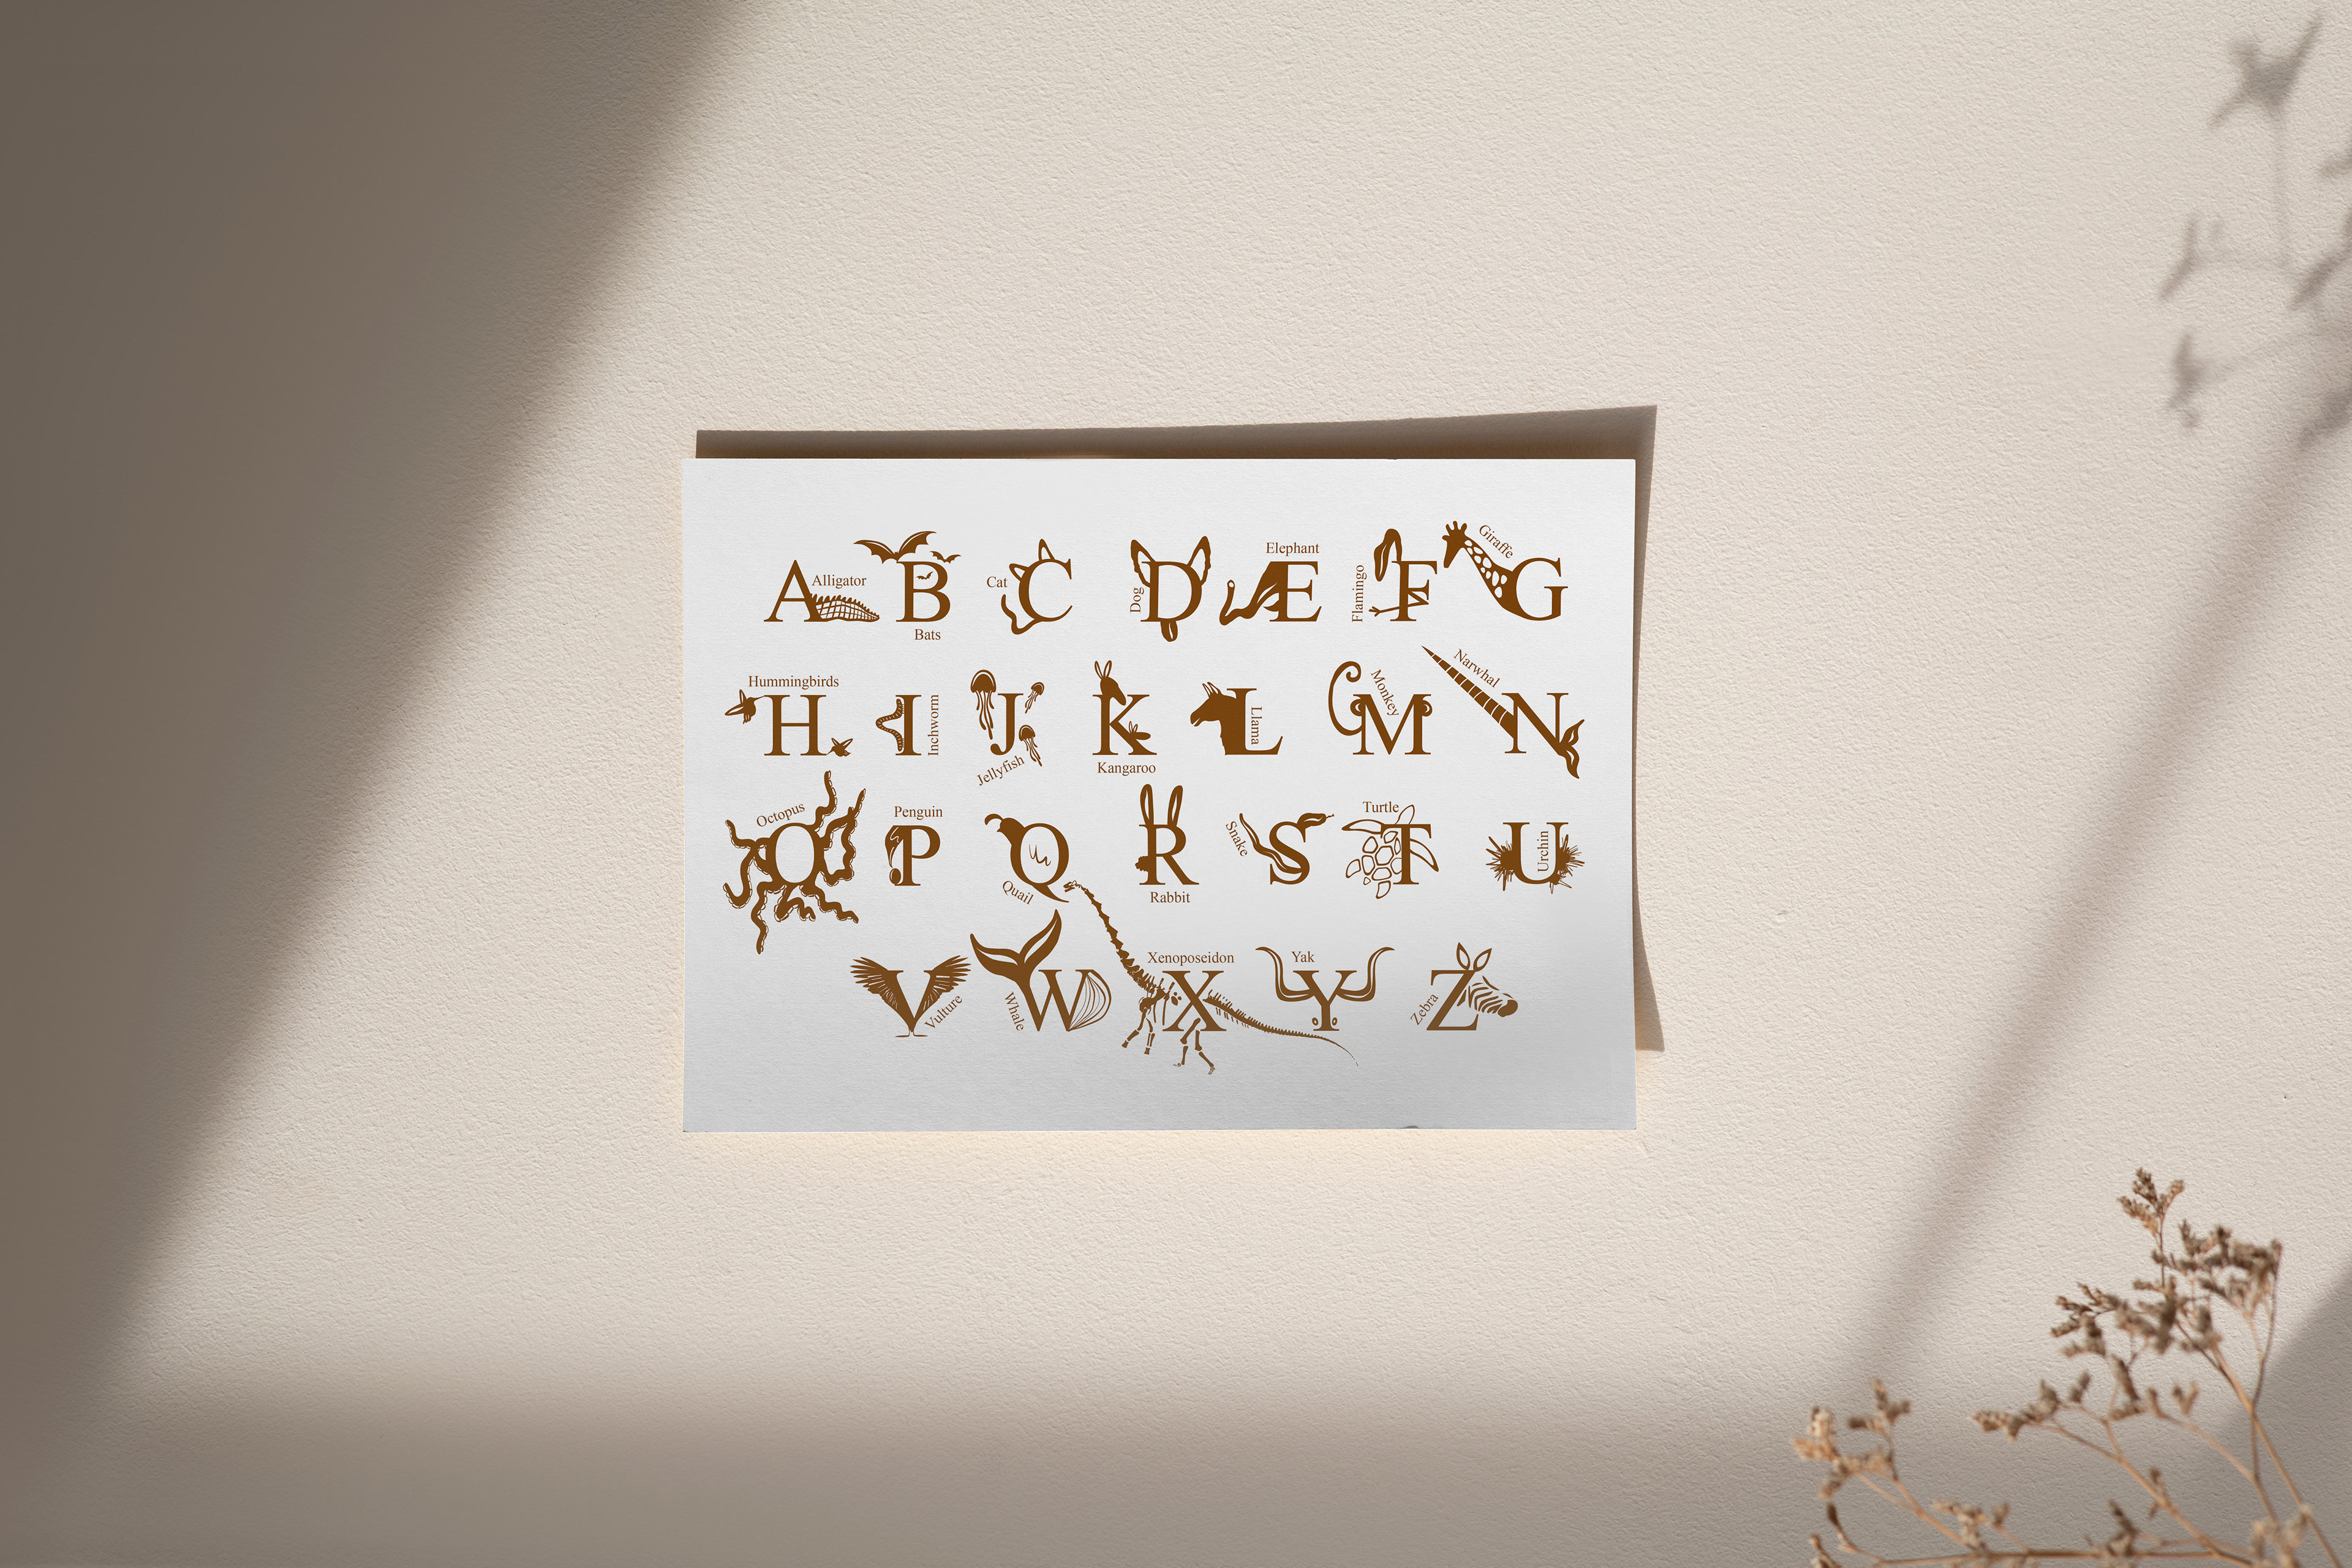 A Alligator
B Bats
C Cat
D Dog
E Elephant
F Flamingo
G Giraffe
H Hummingbirds
I Inchworm
J Jellyfish
K Kangaroo
L Llama
M Monkey
N Narwhal
O Octopus
P Penguin
Q Quail
R Rabbit
S Snake
T Turtle
U Urchin
V Vulture
W Whale
X Xenoposeidon
Y Yak
Z Zebra